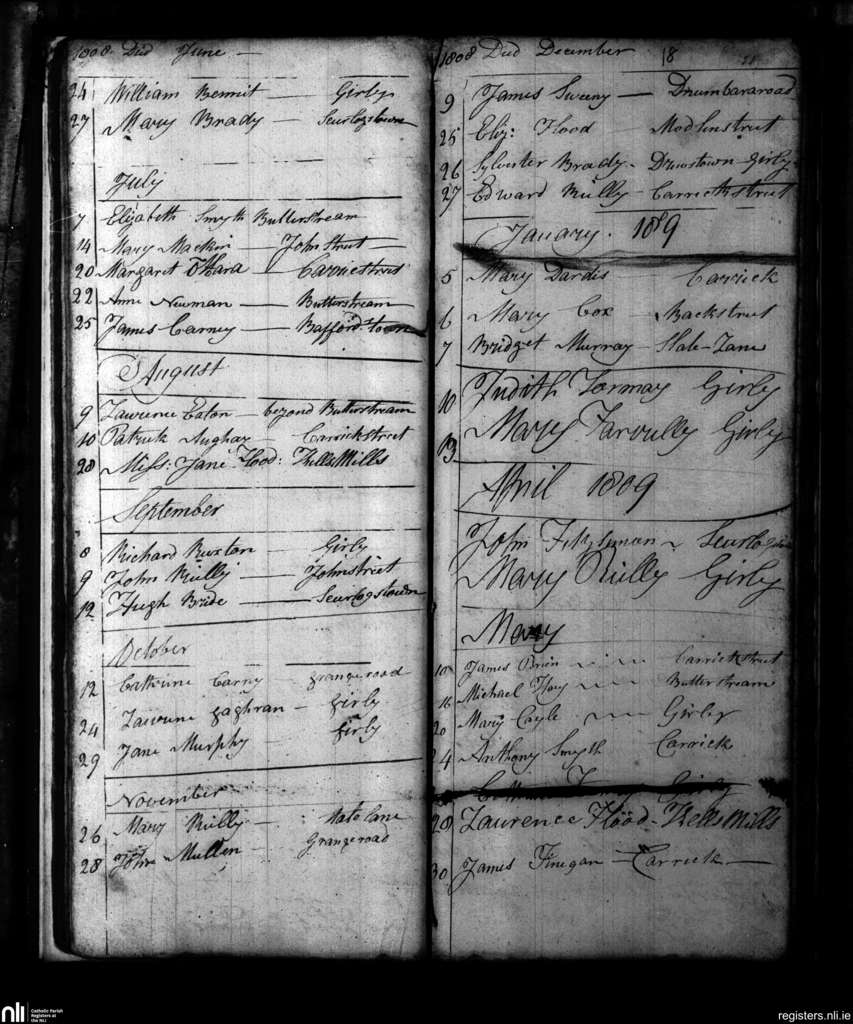 1808 Died June —
24 William Bennit — Girly
27 Mary Brady — Scurlogstown
July
7 Elizabeth Smyth Butterstream
14 Mary Mackin — Johnstreet —
20 Margaret O'Hara — Carricstreet
22 Anne Newman — Butterstream
25 James Carney — Bafford town
August
9 Lawrence Eaton — beyond Butterstream
10 Patrick Aughay — Carrickstreet
28 Miss: Jane Flood: Kells Mills
September
8 Richard Ruxton — Girly
9 John Rielly — Johnstreet
12 Hugh Bride — Scurlogstown
October
12 Catherine Carny grangeroad
24 Lawrence gaghran — girly
29 Jane Murphy — girly
November
26 Mary Rielly — Slate lane
28 John Mullen — Grangeroad
1808 Died December 18
9 James Sweeny — Drumbararoad
25 Eliz: Flood Modlinstreet
26 Sylvester Brady - Drewstown-Girly
27 Edward Rielly — Carrickstreet
Janary. 1809
5 Mary Dardis — Carrick
6 Mary Cox — Backstreet
7 Bridget Murray — Slate-Lane
10 Judith Tormay Girly
13 Mary Farrelly Girly
April 1809
John Fitzsiman Scurlog
Mary Rielly Girly
May
10 James Brien Carrickstreet
16 Michael Butterstream
20 Mary Coyle Girly
24 Anthony Smyth Carrick
Girly
29 Laurence Flood - Kells Mills
30 James Finegan — Carrick —
nli Catholic Parish
Registers at
the NLI
registers.nli.ie